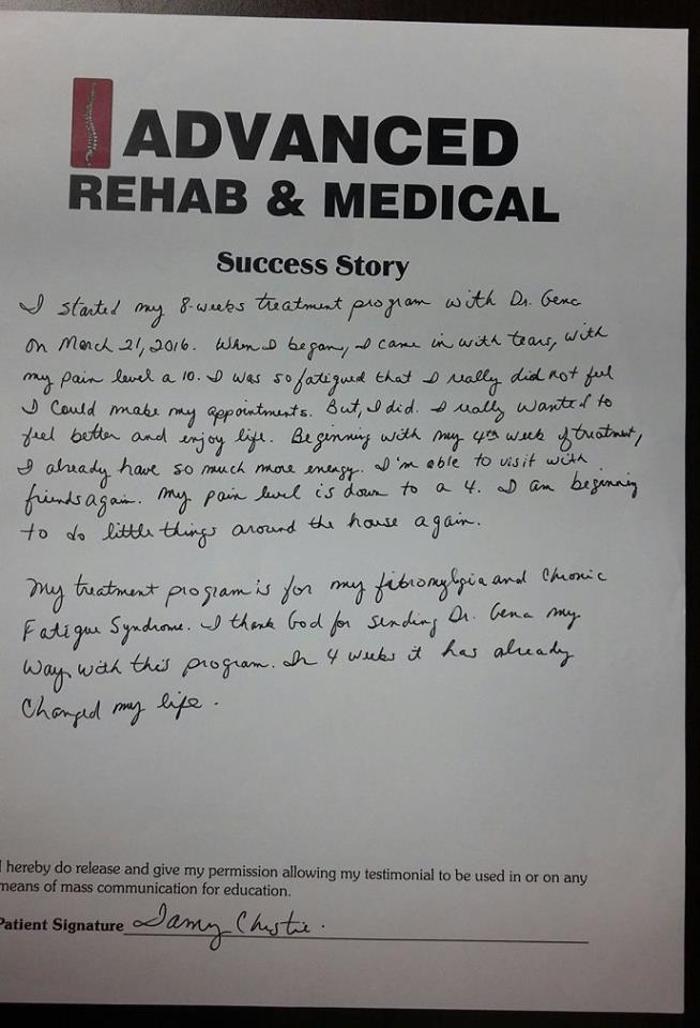 ADVANCED
REHAB & MEDICAL
Success Story
I started my 8-weeks treatment program with Dr. Gena
on March 21, 2016. When I began, I came in with tears, with
my pain level a 10. I was so fatigued that I really did not feel
I could make my appointments. But, I did. I really wanted to
feel better and enjoy life. Beginning with my 4th week of treatment,
I already have so much more energy. I'm able to visit with
friends again. My pain level is down to a 4. I am beginning
to do little things around the house again.
My treatment program is for my fibromylgia and Chronic
Fatigue Syndrome. I thank God for sending Dr. Gena my
way with this program. In 4 weeks it has already
changed my life.
I hereby do release and give my permission allowing my testimonial to be used in or on any
means of mass communication for education.
Patient Signature Christie